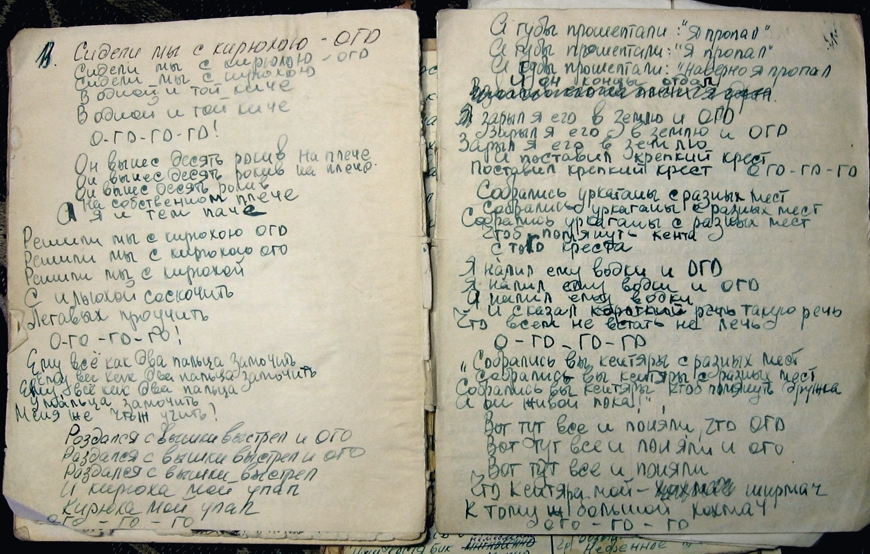 13. Сидели мы с кирюхою - ОГО
Сидели мы с кирюхою - ОГО
Сидели мы с кирюхою
В одной и той киче
В одной и той киче
О-ГО-ГО-ГО!
Он вынес десять роков на плече
Он вынес десять роков на плече
Он вынес десять роков
На собственном плече
А я и тем паче
Решили мы с кирюхою ОГО
Решили мы с кирюхою ого
Решили мы с кирюхой
С соскочить
Легавых проучить
О-ГО-ГО-ГО!
Ему всё как два пальца замочить
Ему всё как два пальца замочить
Ему всё как два пальца
замочить
Меня же чтож учить?
Раздался с вышки выстрел и ОГО
Раздался с вышки выстрел и ОГО
Раздался с вышки выстрел
И кирюха мой упал
Кирюха мой упал
ОГО - ГО - ГО
А губы прошептали: "Я пропал"
А губы прошептали: "Я пропал"
А губы прошептали: "Наверно я пропал
И он концы отдал
Зарыл я его в землю и ОГО
Зарыл я его в землю и ОГО
Зарыл я его в землю
И поставил крепкий крест
Поставил крепкий крест ОГО-ГО-ГО
Собрались уркаганы с разных мест
Собрались уркаганы с разных мест
Собрались уркаганы с разных мест
Чтоб помянуть кента
С того креста
Я налил ему водки и ОГО
Я налил ему водки и ОГО
Я налил ему водки
И сказал короткий речь такую речь
Что всем не встать не лечь
О-ГО-ГО-ГО
"Собрались вы кентяры с разных мест
Собрались вы кентяры с разных мест
Собрались вы кентяры чтоб помянуть дружка
А он живой пока!"
Вот тут все и поняли, что ОГО
Вот тут все и поняли и ого
Вот тут все и поняли
Что кентяра мой - ширмач
К тому ж большой хохмач
ОГО - ГО - ГО